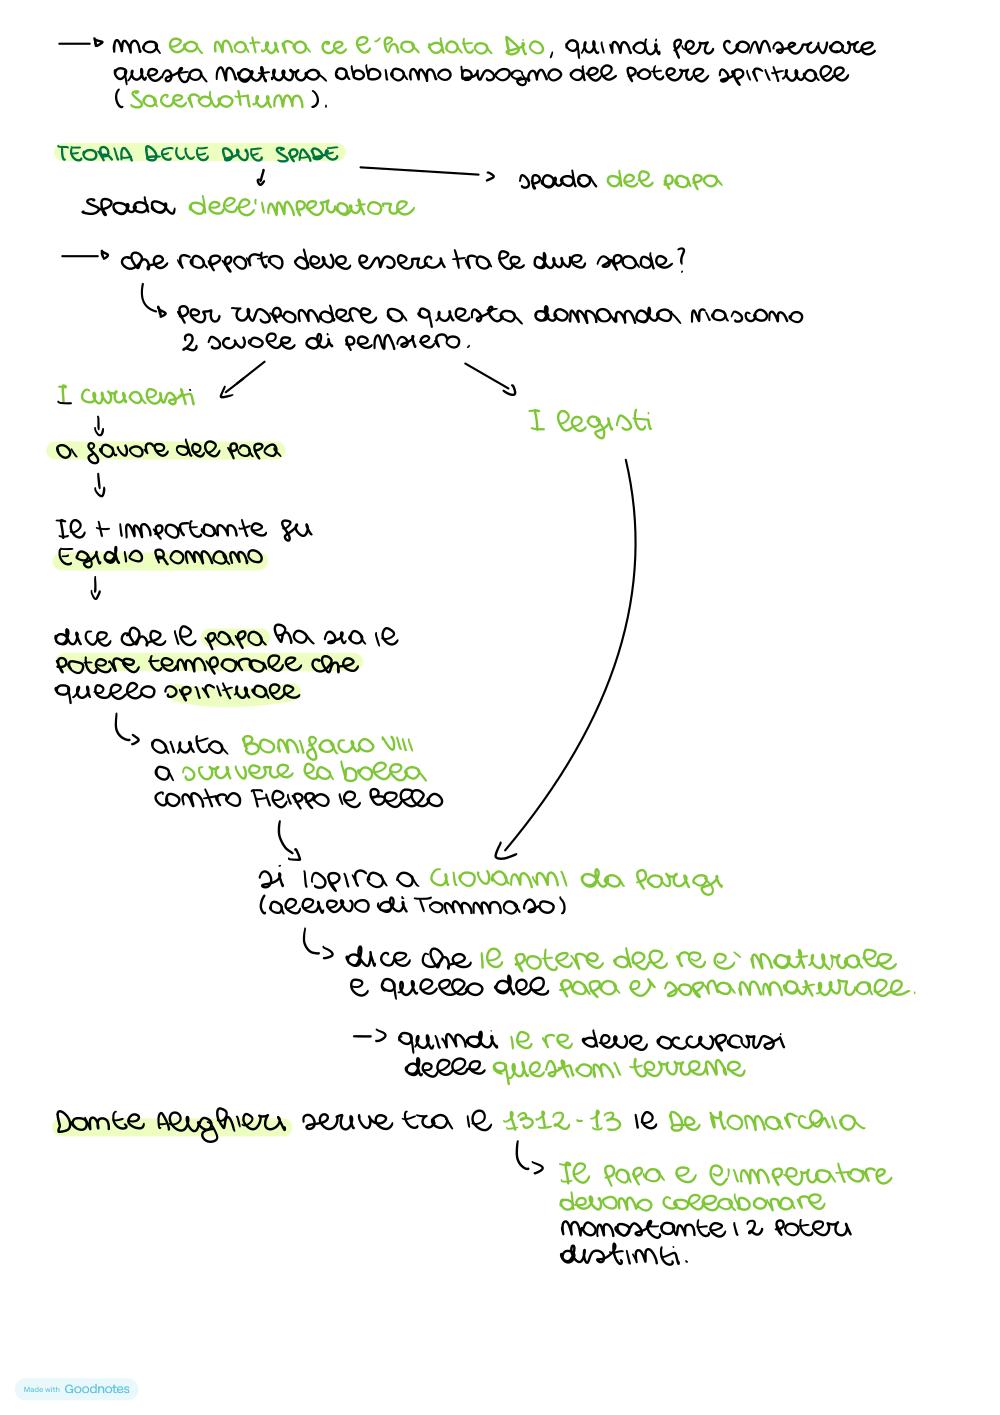 ma la natura ce l'ha data Dio, quindi per conservare
questa natura abbiamo bisogno del potere spirituale
(Sacerdotium).
TEORIA DELLE DUE SPADE
spada del papa
spada dell'imperatore
che rapporto deve esserci tra le due spade?
Per rispondere a questa domanda nascono
2 scuole di pensiero.
I curialisti
I legisti
a favore del papa
Il + importante fu
Egidio Romano
dice che il papa ha sia il
potere temporale che
quello spirituale
aiuta Bonifacio VIII
a scrivere la bolla
contro Filippo il Bello
si ispira a Giovanni da Parigi
(allievo di Tommaso)
dice che il potere del re e' naturale
e quello del papa e' soprannaturale.
quindi il re deve occuparsi
delle questioni terrene
Dante Alighieri scrive tra il 1312-13 il De Monarchia
Il papa e l'imperatore
devono collaborare
nonostante i 2 poteri
distinti.
Made with Goodnotes